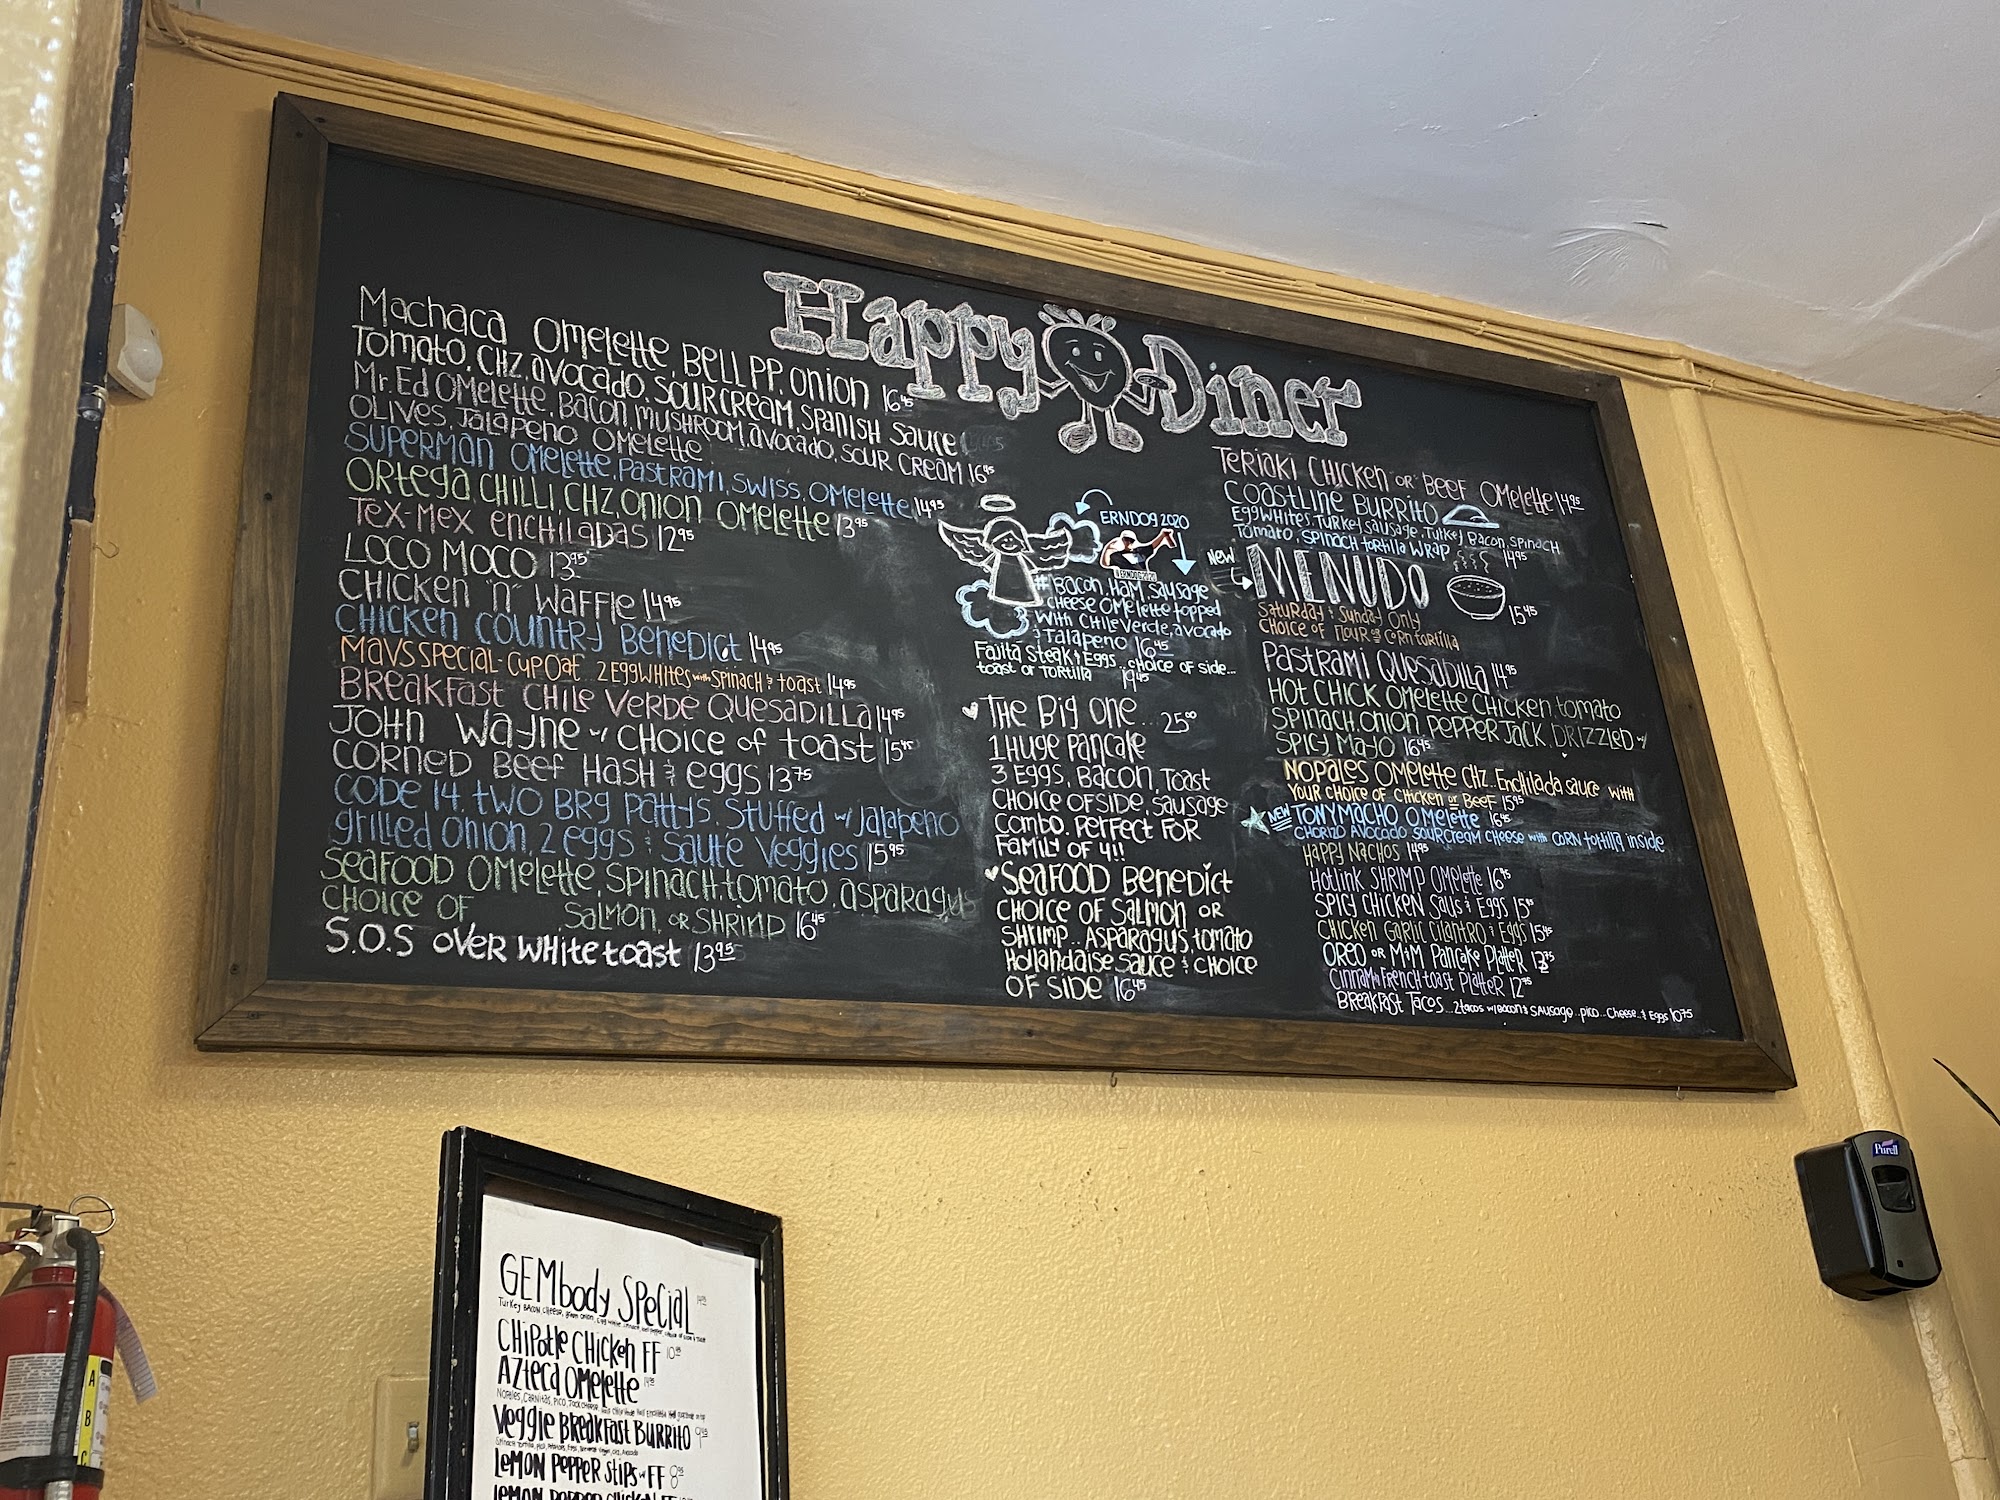 Happy Diner
Machaca Omelette, Bell PP, Onion 16.45
Tomato, CHZ, Avocado, Sour Cream, Spanish Sauce
Mr. Ed Omelette, Bacon, Mushroom, Avocado, Sour Cream 16.45
Olives, Jalapeno Omelette
Superman Omelette, Pastrami, Swiss, Omelette 14.95
Ortega, Chilli, CHZ, Onion Omelette 13.95
Tex-Mex Enchiladas 12.95
Loco Moco 13.95
Chicken "n" Waffle 14.95
Chicken Country Benedict 14.95
Mavs Special - Cup Oat 2 Egg Whites with Spinach & Toast 14.95
Breakfast Chile Verde Quesadilla 14.95
John Wayne w/ Choice of Toast 15.45
Corned Beef Hash & Eggs 13.75
Code 14, Two BRG Pattys, Stuffed w/ Jalapeno
Grilled Onion, 2 Eggs & Saute Veggies 15.95
Seafood Omelette, Spinach, Tomato, Asparagus
Choice of Salmon, or Shrimp 16.45
S.O.S over White Toast 13.95
ERNDOG 2020
#Bacon, Ham Sausage
Cheese Omelette topped
with Chile Verde, Avocado
& Jalapeno 16.45
Fajita Steak & Eggs.. Choice of Side...
Toast or Tortilla 19.45
The Big One... 25.00
1 Huge Pancake
3 Eggs, Bacon, Toast
Choice of Side, Sausage
Combo. Perfect for
Family of 4!!
Seafood Benedict
Choice of Salmon or
Shrimp.. Asparagus, Tomato
Hollandaise Sauce & Choice
of Side 16.45
Teriaki Chicken or Beef Omelette 14.95
Coastline Burrito
Egg Whites, Turkey Sausage, Turkey Bacon, Spinach
Tomato, Spinach Tortilla Wrap 14.95
New
MENUDO 15.45
Saturday & Sunday Only
Choice of Flour or Corn Tortilla
Pastrami Quesadilla 14.95
Hot Chick Omelette Chicken Tomato
Spinach, Onion Pepper Jack, Drizzled w/
Spicy Mayo 16.45
Nopales Omelette CHZ.. Enchilada Sauce with
Your Choice of Chicken or Beef 15.95
New Tony Macho Omelette 16.45
Chorizo Avocado Sour Cream Cheese with Corn Tortilla inside
Happy Nachos 14.95
Hotlink Shrimp Omelette 16.45
Spicy Chicken Saus & Eggs
Chicken Garlic Cilantro & Eggs 15.45
Oreo or M&M Pancake Platter
Cinnamn French Toast Platter 12.75
Breakfast Tacos...2 tacos w/ Bacon & Sausage..pico...Cheese..& Eggs 10.75
Purell
GEMbody Special
Chipotle Chicken FF 10.95
Azteca Omelette
Nopales, Carnitas, Pico, Jack Cheese
Veggie Breakfast Burrito
Lemon Pepper Stips w/ FF 8.95
Lemon Pepper Chicken FF
A
B
C